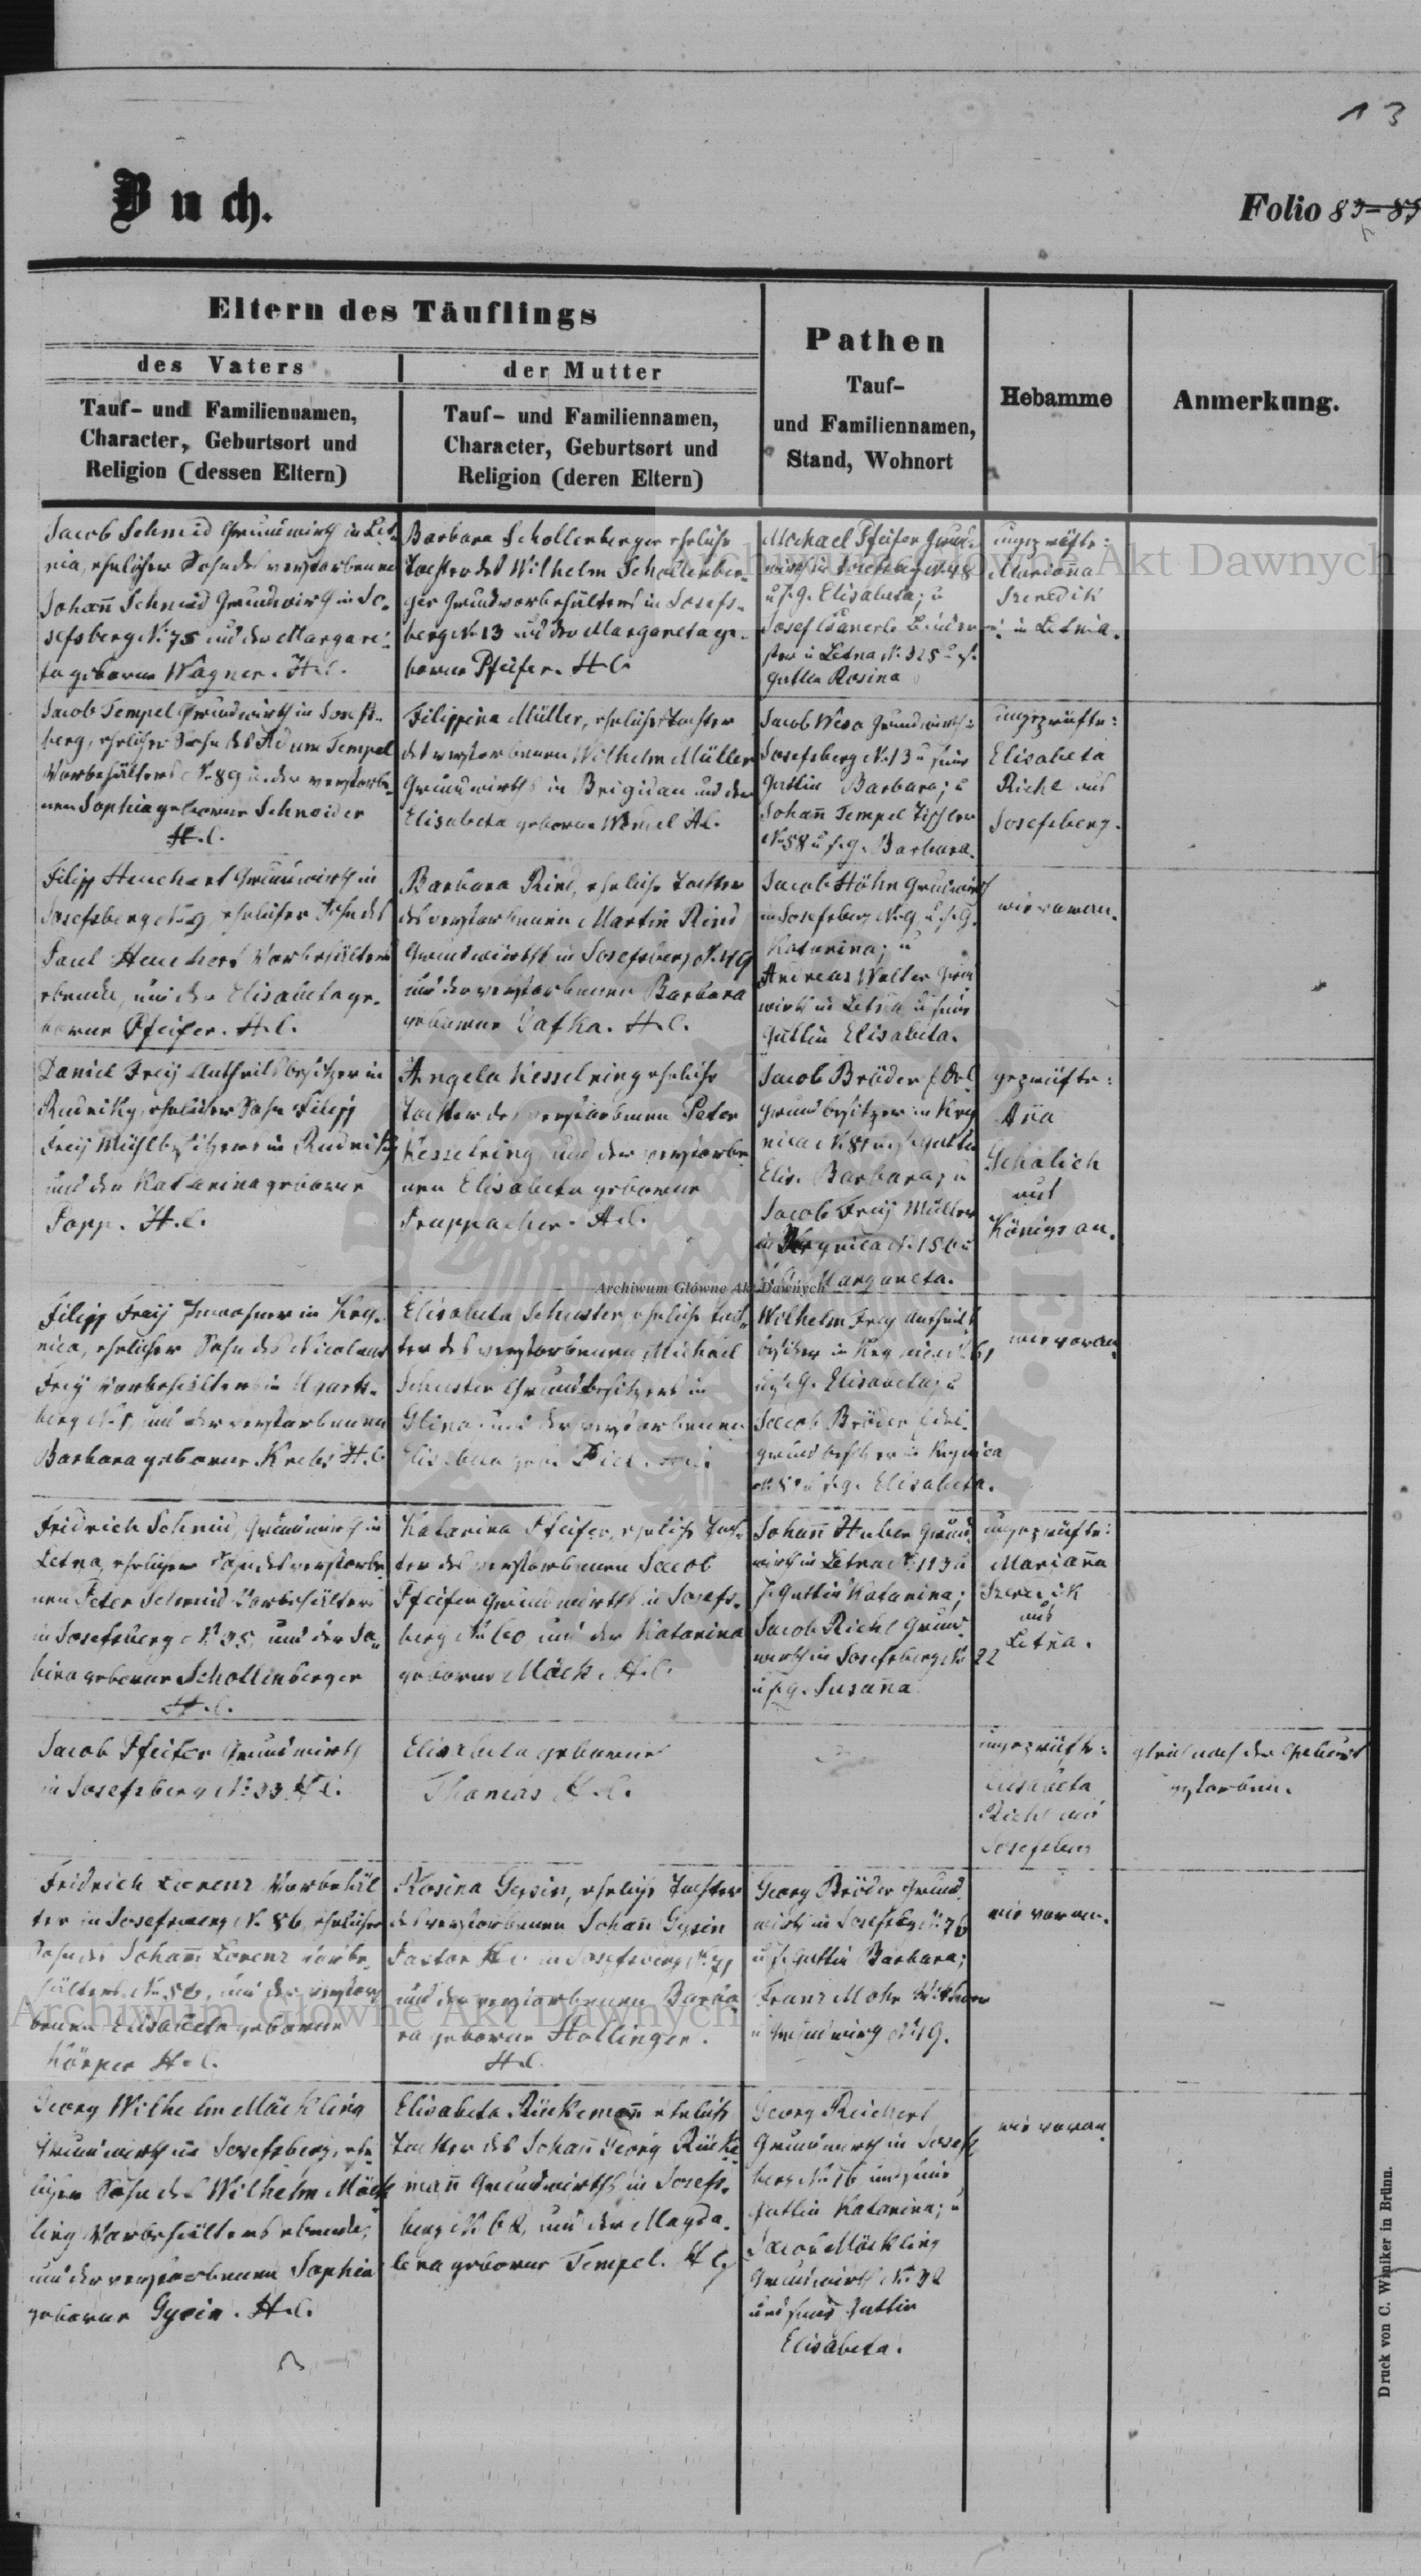 13
Buch.
Folio 83-85
Eltern des Täuflings
des Vaters
der Mutter
Tauf- und Familiennamen,
Character, Geburtsort und
Religion (dessen Eltern)
Tauf- und Familiennamen,
Character, Geburtsort und
Religion (deren Eltern)
Pathen
Tauf-
und Familiennamen,
Stand, Wohnort
Hebamme
Anmerkung.
Jacob Schmid Grundwirth in Let-
nia, ehelicher Sohn des verstorbenen
Johañ Schmid Grundwirth in Jo-
sefsberg N. 75 und der Margare-
ta geborne Wagner. H.C.
Barbara Schollenberger eheliche
Tochter des Wilhelm Schollenber-
ger Grundvorbehälters in Josefs-
berg N. 13 und der Margareta ge-
borne Pfeifer. H.C.
Michael Pfeifer Grund-
wirth in Josefsberg N. 48
u. s. G. Elisabeta; u
Josef
in Letna N. 325 u s.
Gattin Rosina
ungeprüfte:
Marianna
Szeredik
in Letnia.
Jacob Tempel Grundwirth in Josefs-
berg, ehelicher Sohn des Adam Tempel
Vorbehälters N. 89 u. der verstorbe-
nen Sophia geborne Schneider
H.C.
Filippina Müller, eheliche Tochter
des verstorbenen Wilhelm Müller
Grundwirths in Brigidau und der
Elisabeta geborne Wendel H.C.
Jacob Weso Grundwirth in
Josefsberg N. 13 u seine
Gattin Barbara; u
Johañ Tempel Tischler
N. 58 u. s. g. Barbara.
ungeprüfte:
Elisabeta
Richl aus
Josefsberg.
Filipp Heuchert Grundwirth in
Josefsberg N. 9 ehelicher Sohn des
Paul Heuchert Vorbehälters
ebenda, und der Elisabeta ge-
borne Pfeifer. H.C.
Barbara Rind, eheliche Tochter
des verstorbenen Martin Rind
Grundwirths in Josefsberg N. 49
und der verstorbenen Barbara
geborne Safka. H.C.
Jacob Höhn Grundwirth
in Josefsberg N. 9 u. s. G.
Katarina; u
Andreas Walter Grund
wirth in Letna u seine
Gattin Elisabeta.
wie voran.
Daniel Freÿ Antheilsbesitzer in
Rudniky, ehelicher Sohn Filipp
Freÿ Mühlbesitzers in Rudniky
und der Katarina geborne
Popp. H.C.
Angela Kesselring eheliche
Tochter des verstorbenen Peter
Kesselring und der verstorbe-
nen Elisabeta geborne
Trappacher. H.C.
Jacob Bröder
Grundbesitzer in Kry
nica N. 81 u. s. Gattin
Elis. Barbara; u
Jacob Freÿ Müller
in Krynica N. 156 u
s. G. Margareta.
geprüfte:
Aña
Schalich
aus
Königsau.
Filipp Freÿ Inwohner in Kry-
nica, ehelicher Sohn des Nicolaus
Freÿ Vorbehälters in Ugarts-
berg N. 1, und der verstorbenen
Barbara geborne Krebs H.C.
Elisabeta Schuster, eheliche Toch-
ter des verstorbenen Michael
Schuster Grundbesitzers in
Glina und der verstorbenen
Elisabeta geb.
Wilhelm Freÿ Antheils
besitzer in Krynica N. 61
u. s. G. Elisabeta; u
Jacob Bröder
Grundbesitzer in Krynica
u. s. g. Elisabeta.
wie voran.
Fridrich Schmid, Grundwirth in
Letna, ehelicher Sohn des verstorbe-
nen Peter Schmid Vorbehälters
in Josefsberg N. 35, und der Sa-
bina geborne Schollenberger
H.C.
Katarina Pfeifer, eheliche Toch-
ter des verstorbenen Jacob
Pfeifer Grundwirths in Josefs-
berg N. 60 und der Katarina
geborne Mäck. H.C.
Johañ Huber Grund
wirth in Letna N. 113 u
s. Gattin Katarina;
Jacob Richl Grund-
wirth in Josefsberg N. 22
u. s. g. Susaña
ungeprüfte:
Mariaña
Szeredik
aus
Letna.
Jacob Pfeifer Grundwirth
in Josefsberg N. 33 H.C.
Elisabeta geborne
Thomas H.C.
ungeprüfte:
Elisabeta
Richl aus
Josefsberg
gleich nach der Geburt
gestorben.
Fridrich Lorenz Vorbehäl
ter in Josefsberg N. 86, ehelicher
Sohn des Johañ Lorenz Vorbe-
hälters N. 56, und der verstor
benen Elisabeta geborne
Körper H.C.
Rosina Gysin, eheliche Tochter
des verstorbenen Johañ Gysin
Pastor H.C. in Josefsberg N. 71
und der verstorbenen Barba-
ra geborne Hollinger.
H.C.
Georg Bröder Grund
wirth in Josefsbg N. 76
u. s. Gattin Barbara;
Franz Mohr Witwer
u Grundwirth N. 19.
wie voran.
Georg Wilhelm Mäckling
Grundwirth in Josefsberg, ehe
licher Sohn des Wilhelm Mäck
ling Vorbehälters ebenda,
und der verstorbenen Sophia
geborne Gysin. H.C.
Elisabeta Rückemañ eheliche
Tochter des Johañ Georg Rücke
mañ Grundwirths in Josefs-
berg N. 62, und der Magda-
lena geborne Tempel. H.C.
Georg Reichert
Grundwirth in Josefs
berg N. 16 und seine
Gattin Katarina; u
Jacob Mäckling
Grundwirth N. 92
und seine Gattin
Elisabeta.
wie voran.
Druck von C. Winiker in Brünn.
Archiwum Główne Akt Dawnych
Archiwum Główne Akt Dawnych
Archiwum Główne Akt Dawnych